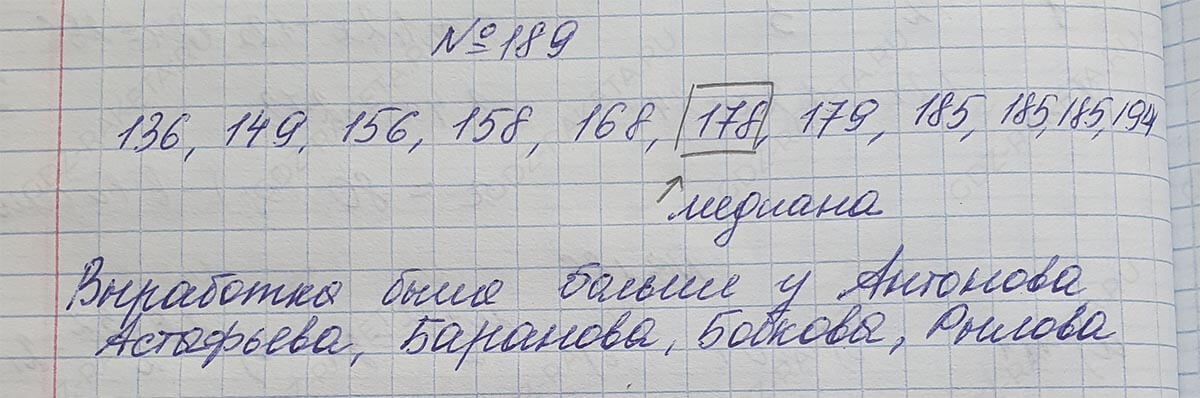 №189
136, 149, 156, 158, 168, 178, 179, 185, 185, 185, 194
медиана
Выработка была больше у Антонова
Астафьева, Баранова, Бобкова, Рылова